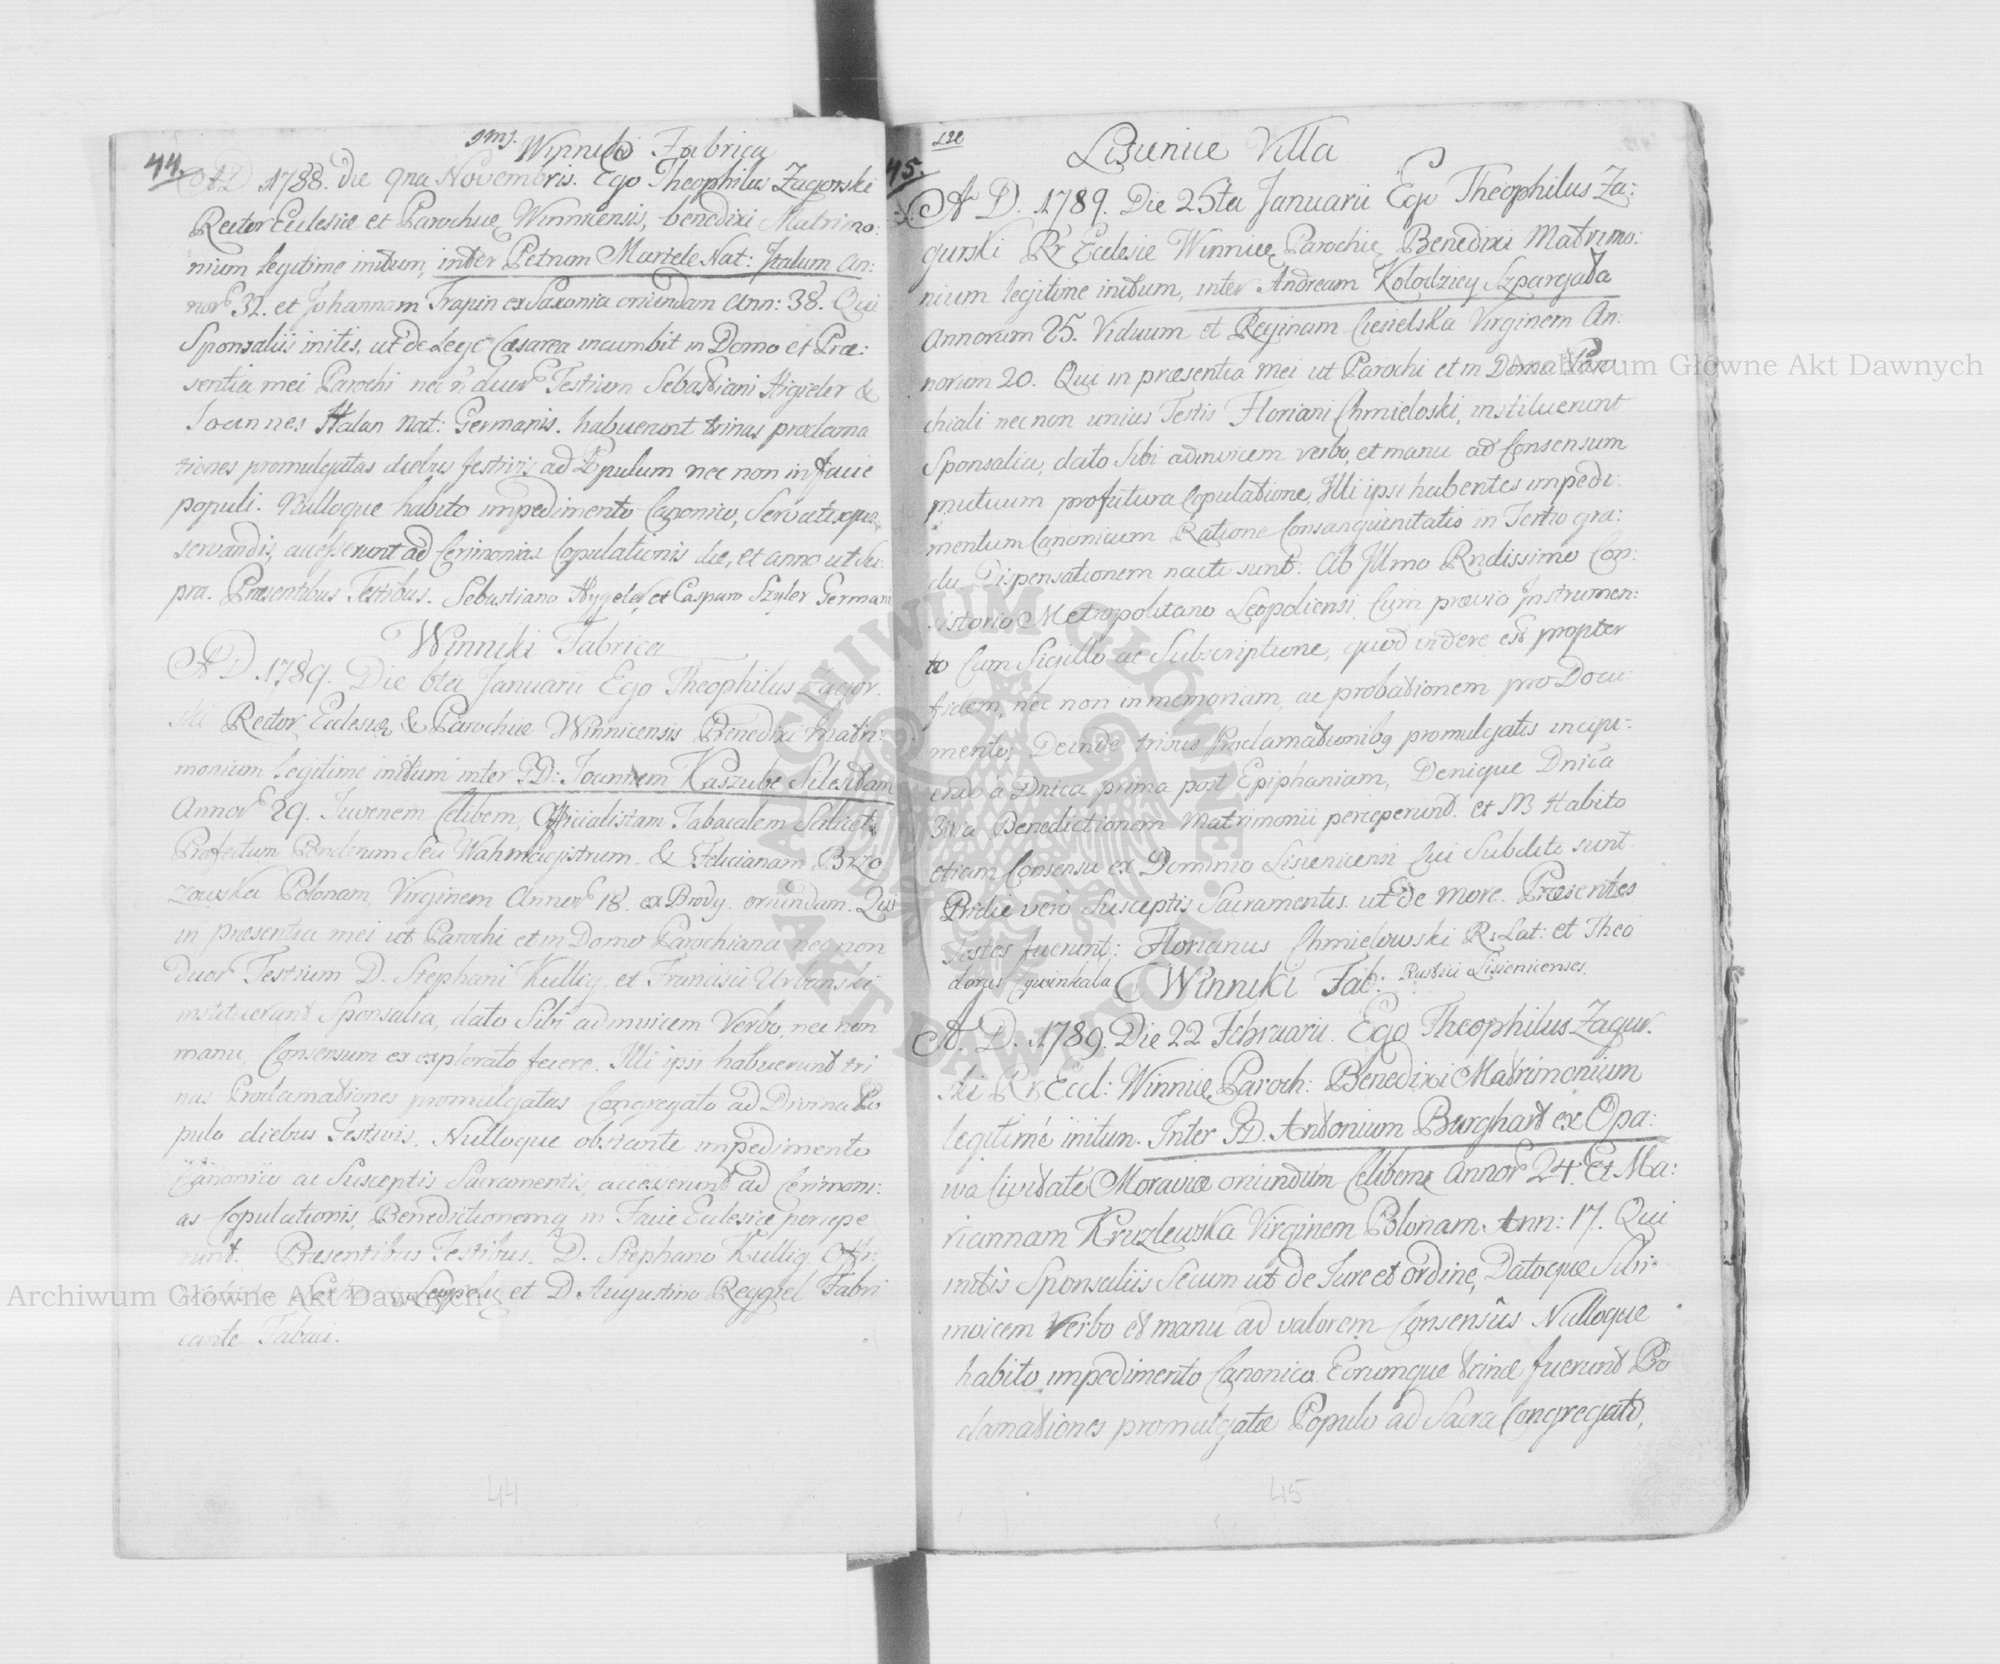 44.
Winniki Fabrica
A D 1788. die 9na Novembris. Ego Theophilus Zagorski
Rector Eclesiæ et Parochiæ Winnicensis, benedixi Matrimo:
nium legitime initum, inter Petrum Martele Nat: Italum An:
nor 32. et Johannam Trapin ex Saxonia oriundam Ann: 38. Qui
Sponsaliis initis, ut de Lege Cæsarea incumbit in Domo et Præ:
sentia mei Parochi nec n duor Testium Sebastiani Higieler &
Joannes Halan Nat: Germanis. habuerunt trinas proclama
tiones promulgatas diebus festivis ad Populum nec non in facie
populi. Nulloque habito impedimento Canonico, Servatisque
servandis, accesserunt ad Cerimonias Copulationis die, et anno ut su:
pra. Præsentibus Testibus. Sebastiano Hygeler, et Casparo Szyler German
Winniki Fabrica
A D 1789. Die 6ta Januarii Ego Theophilus Zagor.
ski Rector Eclesiæ & Parochiæ Winnicensis Benedixi Matri:
monium legitime initum inter D: Joannem Kaszube Silesitam
Annor 29. Juvenem Celibem, Officialistam Tabacalem Scilicet
Profectum Ponderum Seu Wahmagistrum. & Felicianam Brzo
zowska Polonam, Virginem Annor 18. ex Brody. oriundam. Qui
in præsentia mei ut Parochi et in Domo Parochiana nec non
Duor Testium D. Stephani Kullig. et Francisci Urbanski
instituerunt Sponsalia, dato Sibi adinvicem Verbo, nec non
manu, Consensum ex explorato fecere. Illi ipsi habuerunt tri
nas Proclamationes promulgatas Congregato ad Divina Po
pulo diebus Festivis. Nulloque obstante impedimento
Canonico ac Susceptis Sacramentis, accesserunt ad Cerimoni:
as Copulationis, Benedictionemq in Facie Eclesiæ percepe
runt. Præsentibus Testibus. D. Stephano Kullig
et D Augustino Reggiel Fabri
cante Tabaci.
44
45.
Lisienice Villa
A D. 1789. Die 25ta Januarii Ego Theophilus Za:
gurski Rr Ecclesie Winnice Parochie Benedixi Matrimo:
nium legitime initum, inter Andream Kołodziey Szpargała
Annorum 25. Viduum et Reginam Ciesielska Virginem An:
norum 20. Qui in præsentia mei ut Parochi et in Domo Paro
chiali nec non unius Testis Floriani Chmieloski, instituerunt
Sponsalia, dato Sibi adinvicem verbo, et manu ad Consensum
mutuum profutura Copulatione, Illi ipsi habentes impedi:
mentum Canonicum Ratione Consanguinitatis in Tertio gra:
du Dispensationem nacti sunt: Ab Illmo Rndissimo Con:
sistorio Metropolitano Leopoliensi, Cum prævio Instrumen:
to Cum Sigillo ac Subscriptione, quod videre est propter
fidem, nec non in memoriam, ac probationem pro Docu:
mento, Deinde tribus Proclamationibq promulgatis incipi:
endo a Dnica prima post Epiphaniam, Denique Dnica
3tia Benedictionem Matrimonii perceperunt. et Habito
etiam Consensu ex Dominio Lisienicensi Cui Subditi sunt
Pridie vero Susceptis Sacramentis. ut de more. Præsentes
Testes fuerunt: Florianus Chmielowski R: Lat: et Theo
dorus Cywinkala Rustici Lisienicenses.
Winniki Fab:
A. D. 1789. Die 22 Februarii. Ego Theophilus Zagur.
ski Rr Eccl: Winnice Paroch: Benedixi Matrimonium
legitimé initum. Inter D. Antonium Burghart ex Opa:
wa Civitate Moraviæ oriundum Celibem Annor 24. Et Ma:
riannam Kruzlewska Virginem Polonam Ann: 17. Qui
initis Sponsaliis Secum ut de Jure et ordine, Datoque Sibi
invicem Verbo et manu ad valorem Consensûs Nulloque
habito impedimento Canonico. Eorumque trinæ fuerunt Pro
clamationes promulgatæ Populo ad Sacra Congregato,
45
Archiwum Główne Akt Dawnych
Archiwum Główne Akt Dawnych
ARCHIWUM GŁÓWNE AKT DAWNYCH